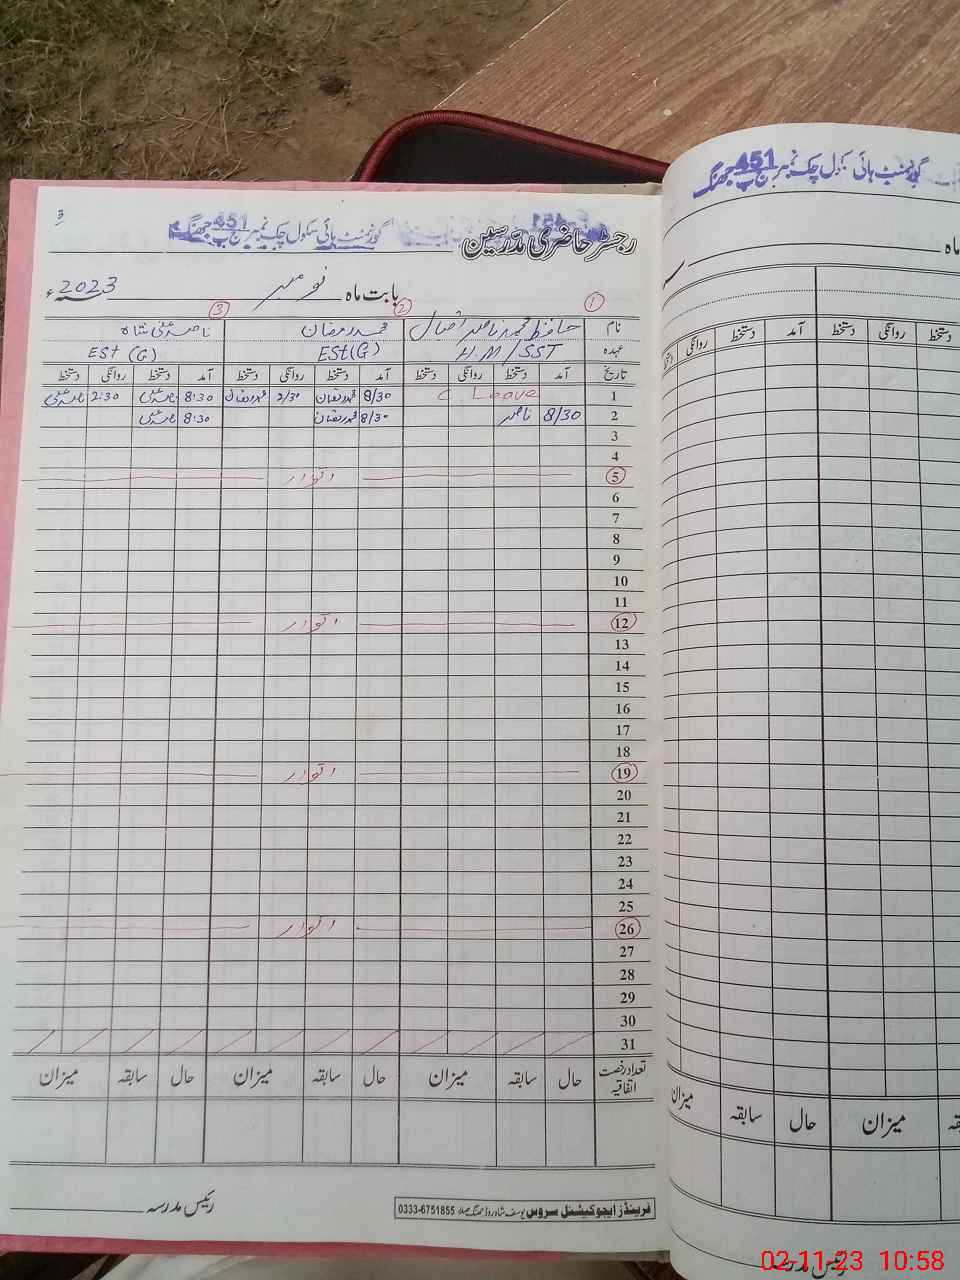 3
گورنمنٹ ہائی سکول چک نمبر 451 ج ب جھنگ
رجسٹر حاضری مدّرسین
بابت ماہ نومبر سنہ 2023ء
1 2 3
نام حافظ محمد ناصر اقبال محمد رمضان ناصر علی شاہ
عہدہ H.M/SST ESt(G) ESt (G)
تاریخ آمد دستخط روانگی دستخط آمد دستخط روانگی دستخط آمد دستخط روانگی دستخط
1 C. Leave 8/30 محمد رمضان 2/30 محمد رمضان 8:30 ناصر علی 2:30 ناصر علی
2 8/30 ناصر 8/30 محمد رمضان 8:30 ناصر علی
3
4
5 اتوار
6
7
8
9
10
11
12 اتوار
13
14
15
16
17
18
19 اتوار
20
21
22
23
24
25
26 اتوار
27
28
29
30
31
تعداد رخصت اتفاقیہ حال سابقہ میزان حال سابقہ میزان حال سابقہ میزان
فرینڈز ایجوکیشنل سروس یوسف شاہ روڈ جھنگ صدر 0333-6751855
رئیس مدرسہ
گورنمنٹ ہائی سکول چک نمبر 451 ج ب جھنگ
ماہ
دستخط روانگی دستخط آمد دستخط روانگی
میزان حال سابقہ میزان
رئیس مدرسہ
02-11-23 10:58